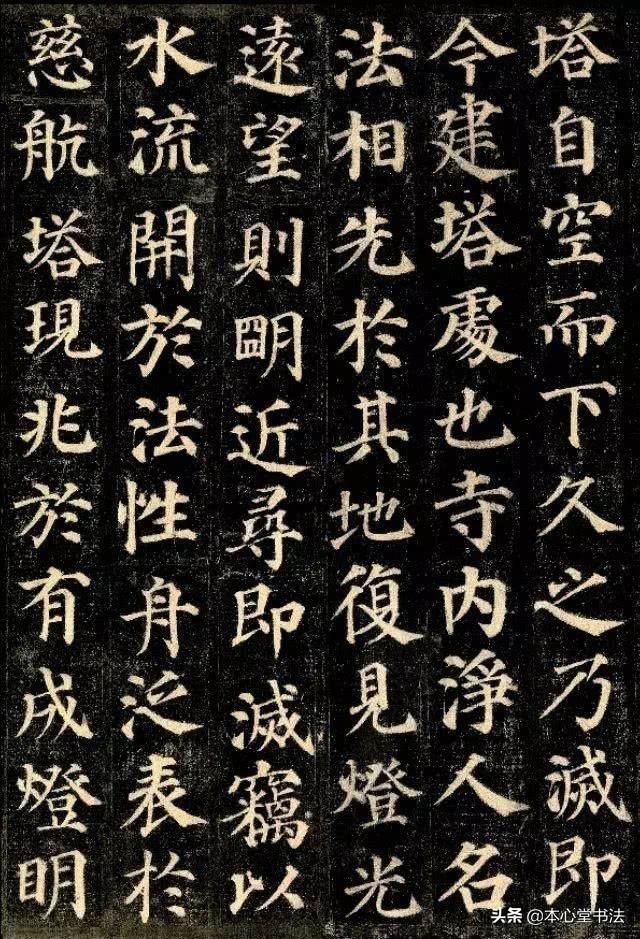 塔自空而下久之乃滅即
今建塔處也寺内淨人名
法相先於其地復見燈光
遠望則明近尋即滅竊以
水流開於法性舟泛表於
慈航塔現兆於有成燈明
头条 @本心堂书法